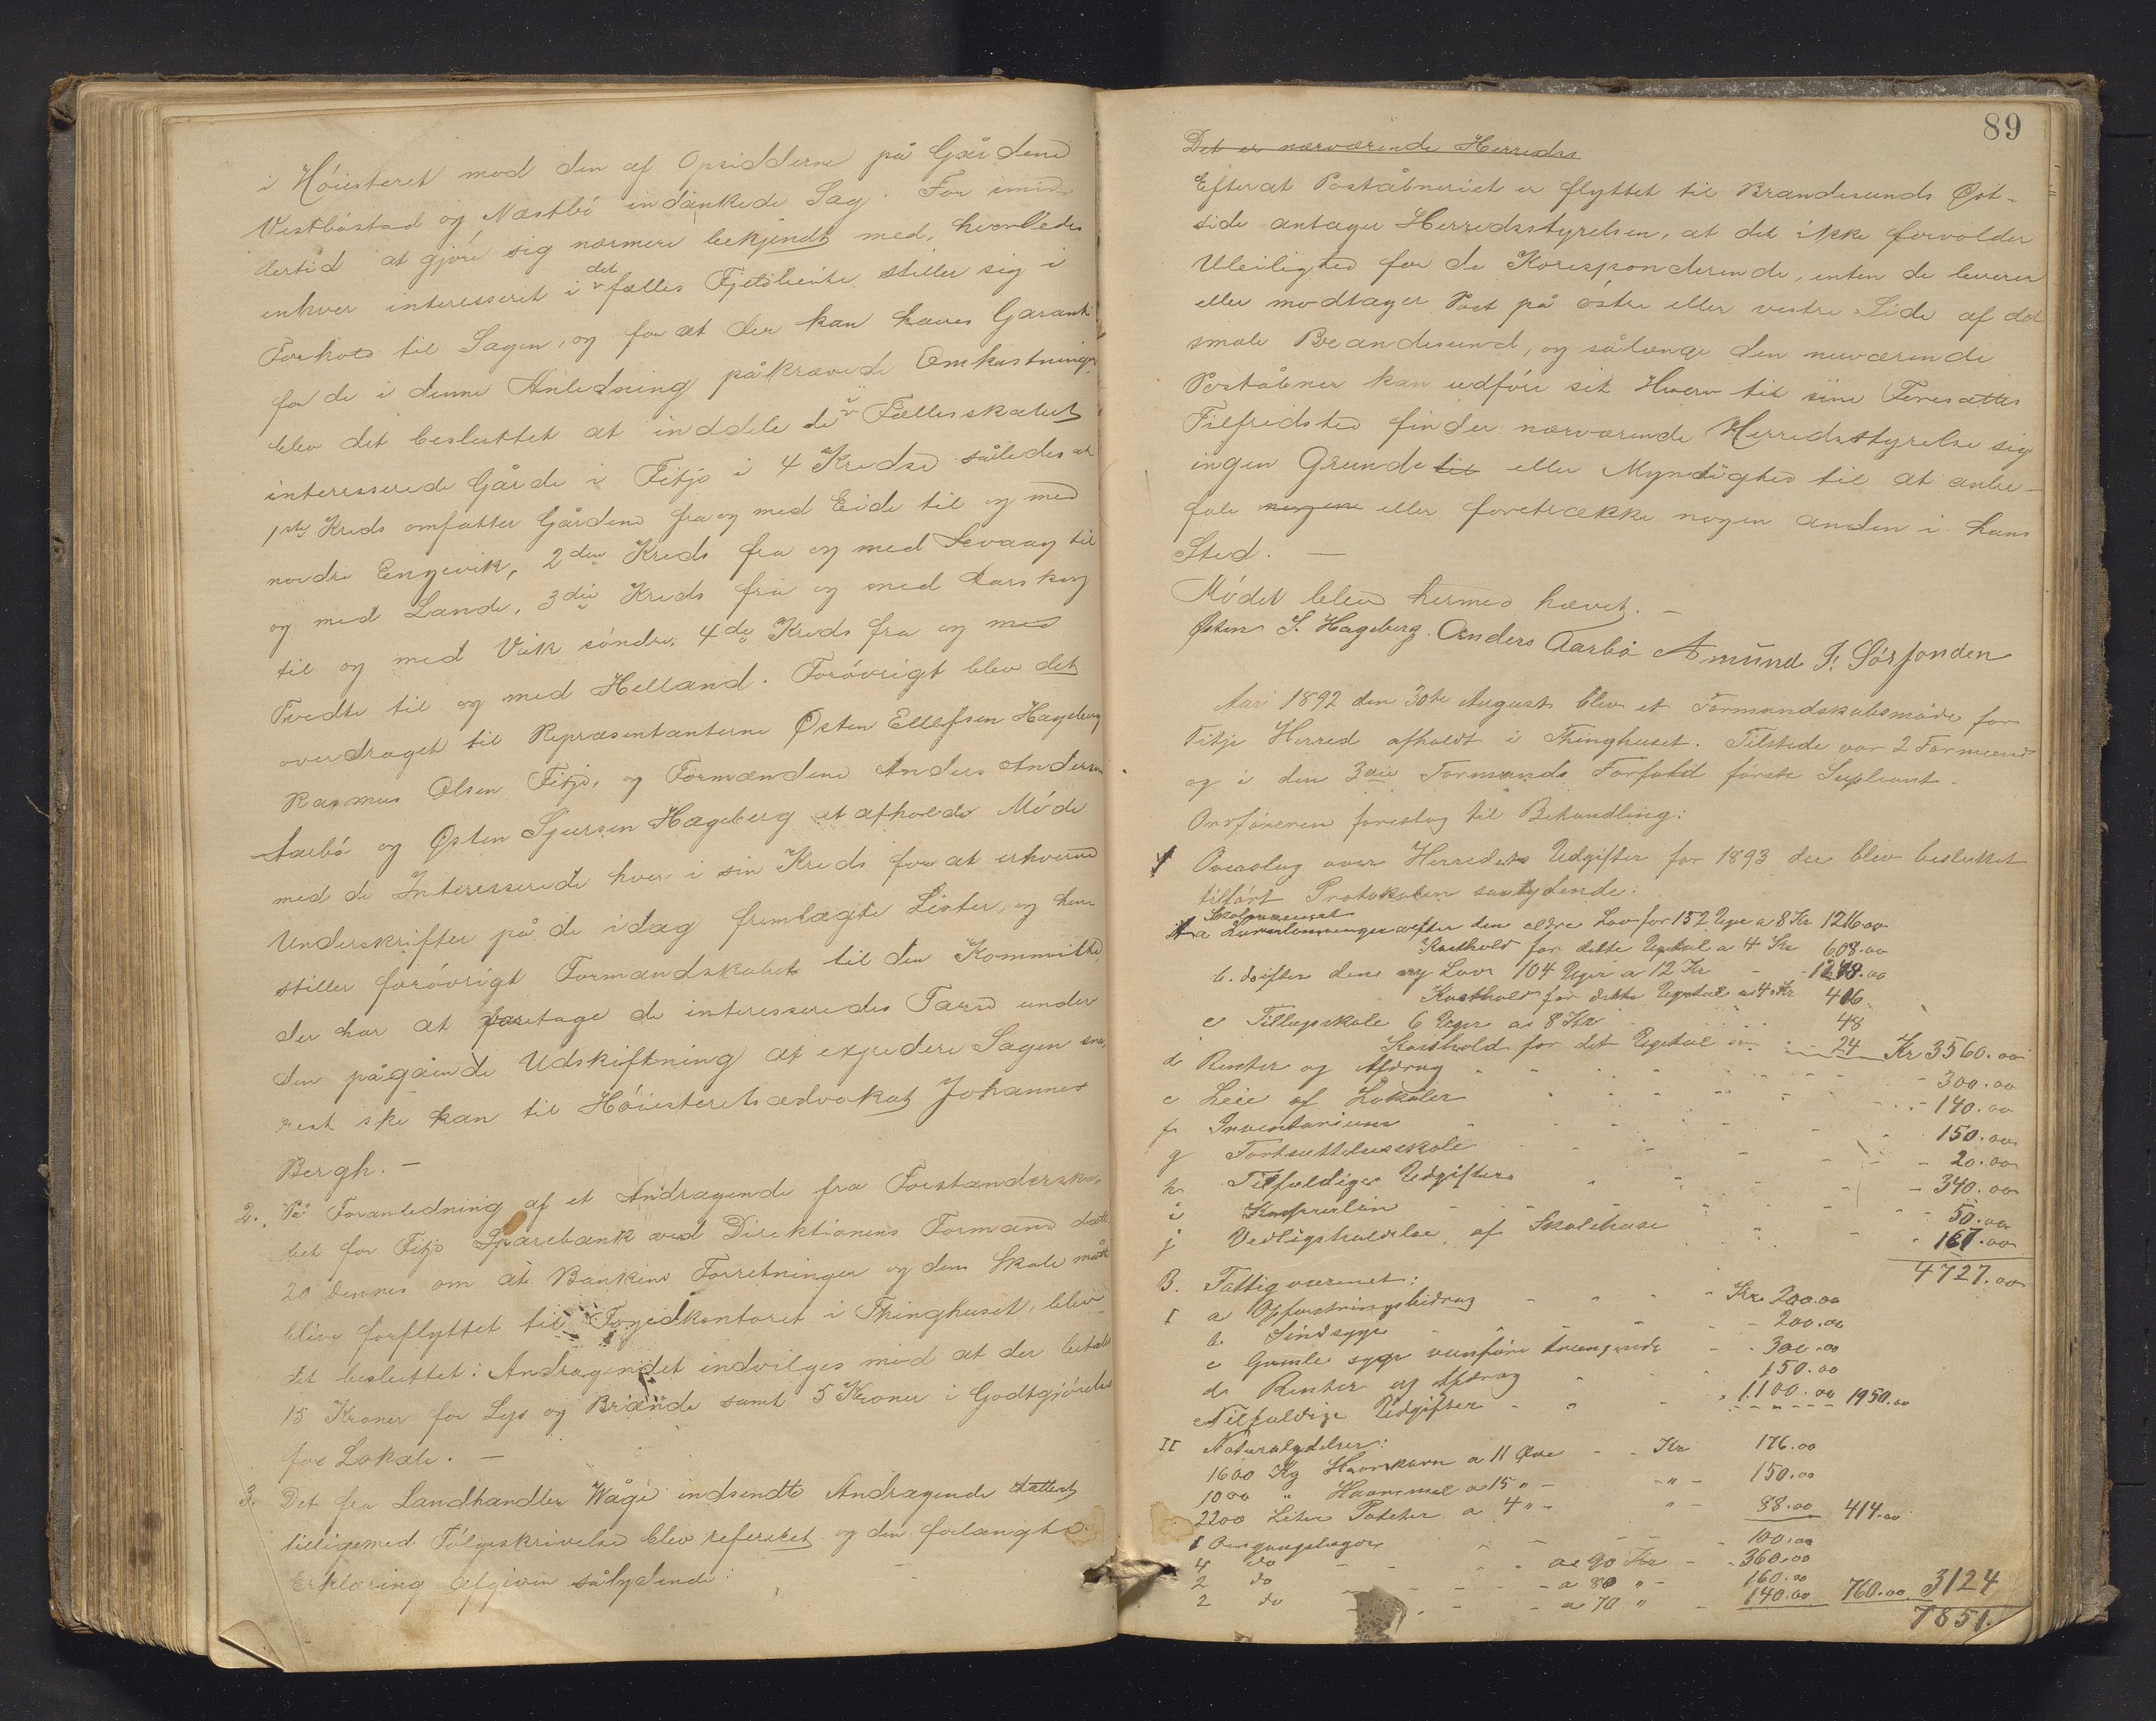 i Høiesteret mod den af Opsidderne på Gårdene
Vestbøstad og Næstbø indankede Sag. For imid-
lertid at gjøre sig nærmere bekjendt med, hvorledes
enhver interesseret i det fælles Fjeldbeite stiller sig i
Forhold til Sagen, og for at der kan haves Garanti
for de i denne Anledning påkrævede Omkostninger,
blev det besluttet at inddele de i Fællesskabet
interesserede Gårde i Fitjo i 4 Kredse således at
1ste Kreds omfatter Gårdene fra og med Eide til og med
nordre Engevik, 2den Kreds fra og med Sevaag til
og med Lande, 3die Kreds fra og med Aarskog
til og med Vik søndre, 4de Kreds fra og med
Tvedte til og med Helland. Forøvrigt blev det
overdraget til Repræsentanterne Østen Ellefsen Hageberg
Rasmus Olsen Fitjo, og Formændene Anders Andersen
Aarbø og Østen Sjursen Hageberg at afholde Møde
med de Interesserede hver i sin Kreds for at erhverve
Underskrifter på de idag fremlagte Lister, og hen-
stiller forøvrigt Formandskabet til den Kommitte,
der har at foretage de interesseredes Tarv under
den pågående Udskiftning at expedere Sagen sna-
rest ske kan til Høiesteretsadvokat Johannes
Bergh. -
2. På Foranledning af et Andragende fra Forstanderska-
bet for Fitjo Sparebank ved Direktionens Formand datt.
20 dennes om at Bankens Forretninger og dens Skole måtte
blive forflyttet til Fogedkontoret i Thinghuset, blev
det besluttet: Andragendet indvilges mod at der betales
15 Kroner for Lys og Brænde samt 5 Kroner i Godtgjørelse
for Lokale. -
3. Det fra Landhandler Wåge indsendte Andragende datteret
tilligemed Følgeskrivelse blev refereret og den forlangte
Erklæring afgiven sålydende:
89
Det er nærværende Herreds
Efterat Poståbneriet er flyttet til Brandesunds Øst-
side antager Herredsstyrelsen, at det ikke forvolder
Uleilighed for de Koresponderende, enten de leverer
eller modtager Post på østre eller vestre Side af det
smale Brandesund, og sålænge den nuværende
Poståbner kan udføre sit Hverv til sine Foresattes
Tilfredshed finder nærværende Herredsstyrelse sig
ingen Grund til eller Myndighed til at anbe-
fale nogen eller foretrække nogen anden i hans
Sted. -
Mødet blev hermed hævet. -
Østen S. Hageberg. Anders Aarbø Amund I. Sørfonden
Aar 1892 den 30te August blev et Formandskabsmøde for
Fitje Herred afholdt i Thinghuset. Tilstede var 2 Formænd
og i den 3die Formands Forfald første Supleant.
Ordføreren foreslog til Behandling:
1 Overslag over Herredets Udgifter for 1893 der blev besluttet
tilført Protokolen saalydende:
Skolevæsenet
A a Lærerlønninger efter den ældre Lov for 152 Uger a 8 Kr 1216.00
Kosthold for dette Ugetal a 4 Kr 608.00
b. do efter den ny Lov 104 Uger a 12 Kr - 1248.00
Kosthold for dette Ugetal a 4 Kr 416
c Tillægsskole 6 Uger a 8 Kr 48
Kosthold for det Ugetal 24 Kr 3560.00
d Renter og Afdrag 300.00
e Leie af Lokaler 140.00
f Inventarium 150.00
g Fortsættelsesskole 20.00
h Tilfældige Udgifter 340.00
i 50.00
j Vedligeholdelse af Skolehuse 167.00
4727.00
B. Fattigvæsenet:
I a Opfostringsbidrag Kr. 200.00
b. Sindsyge 200.00
c Gamle syge vanføre trængende 300.00
d Renter og Afdrag 150.00
e Tilfældige Udgifter 1100.00 1950.00
II Naturalydelser:
1600 Kg Havrekorn a 11 Øre - Kr 176.00
1000 " Havremel a 15 " - " - 150.00
2200 Liter Poteter a 4 " - " - 88.00 414.00
1 Omgangslægd 100.00
4 do a 90 Kr - 360.00
2 do a 80 " - 160.00
2 do a 70 " 140.00 760.00 3124
7851.